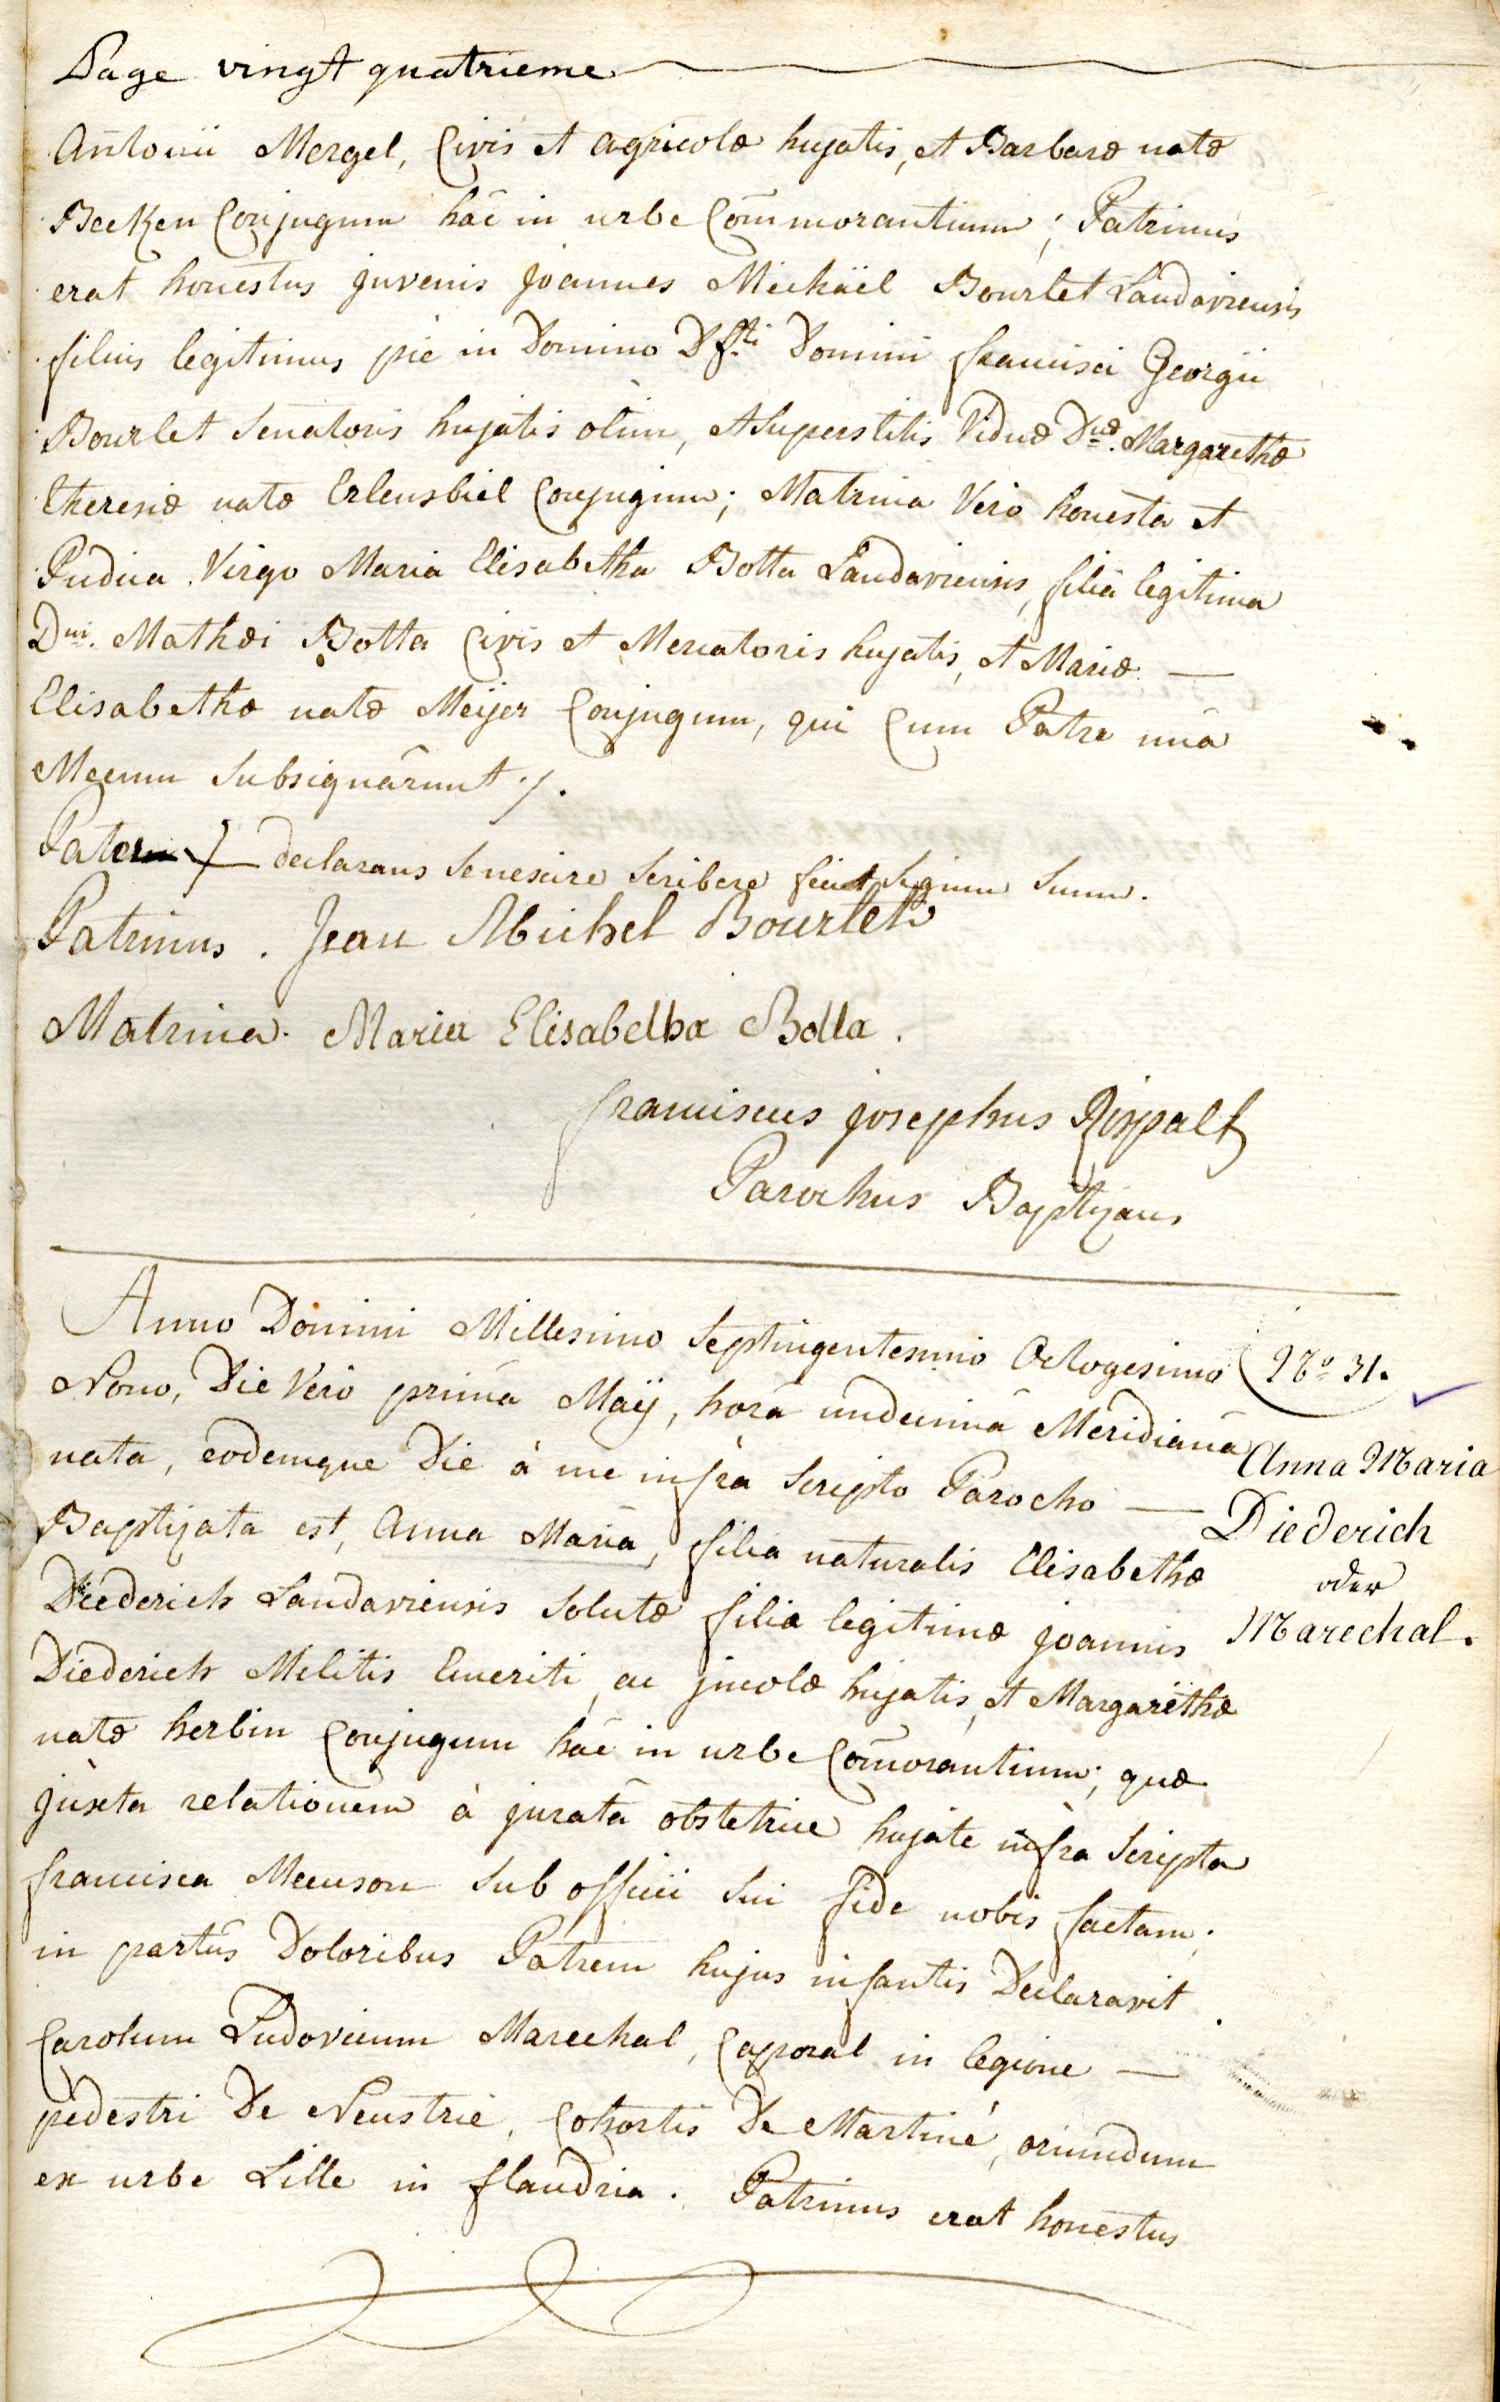 Page vingt quatrieme
Antonii Mergel, Civis et agricolæ hujatis, et Barbaræ natæ
Becken Conjugum hâc in urbe Com̄morantium; Patrinus
erat honestus juvenis Joannes Michäel Bourlet Landaviensis
filius legitimus piè in Domino Dfti Domini francisci Georgii
Bourlet Senatoris hujatis olim, et Superstitis Viduæ Dnæ. Margarethæ
Theresiæ natæ Erlensbiel Conjugum; Matrina Verò honesta et
Pudica Virgo Maria Elisabetha Botta Landaviensis, filia legitima
Dni. Mathæi Botta Civis et Mercatoris hujatis, et Mariæ —
Elisabethæ natæ Meÿer Conjugum, qui Cum Patre unâ
Mecum Subsignârunt ./.
Pater + declarans Se nescire Scribere fecit Signum Suum.
Patrinus. Jean Michel Bourlet
Matrina. Maria Elisabetha Botta.
franciscus josephus Rispalt
Parochus Baptizans
Anno Domini Millesimo Septingentesimo Octogesimo
Nono, Die Verò primâ Maÿ, horâ undecimâ Meridianâ
nata, eodemque Die à me infrà Scripto Parocho —
Baptizata est, Anna Maria, filia naturalis Elisabethæ
Diederich Landaviensis Solutæ filiæ legitimæ joannis
Diederich Militis Emeriti, ac jncolæ hujatis, et Margarëthæ
natæ herbin Conjugum hâc in urbe Com̄orantium; quæ
juxta relationem à juratâ obstetrice hujate infrà Scripta
francisca Meenson Sub officii Sui fide nobis factam;
in partûs Doloribus Patrem hujus infantis Declaravit
Carolum Ludovicum Marechal, Caporal in legione —
pedestri De Neustrie, Cohortis De Martiné, oriundum
ex urbe Lille in flandria. Patrinus erat honestus
No 31.
Anna Maria
Diederich
oder
Marechal.